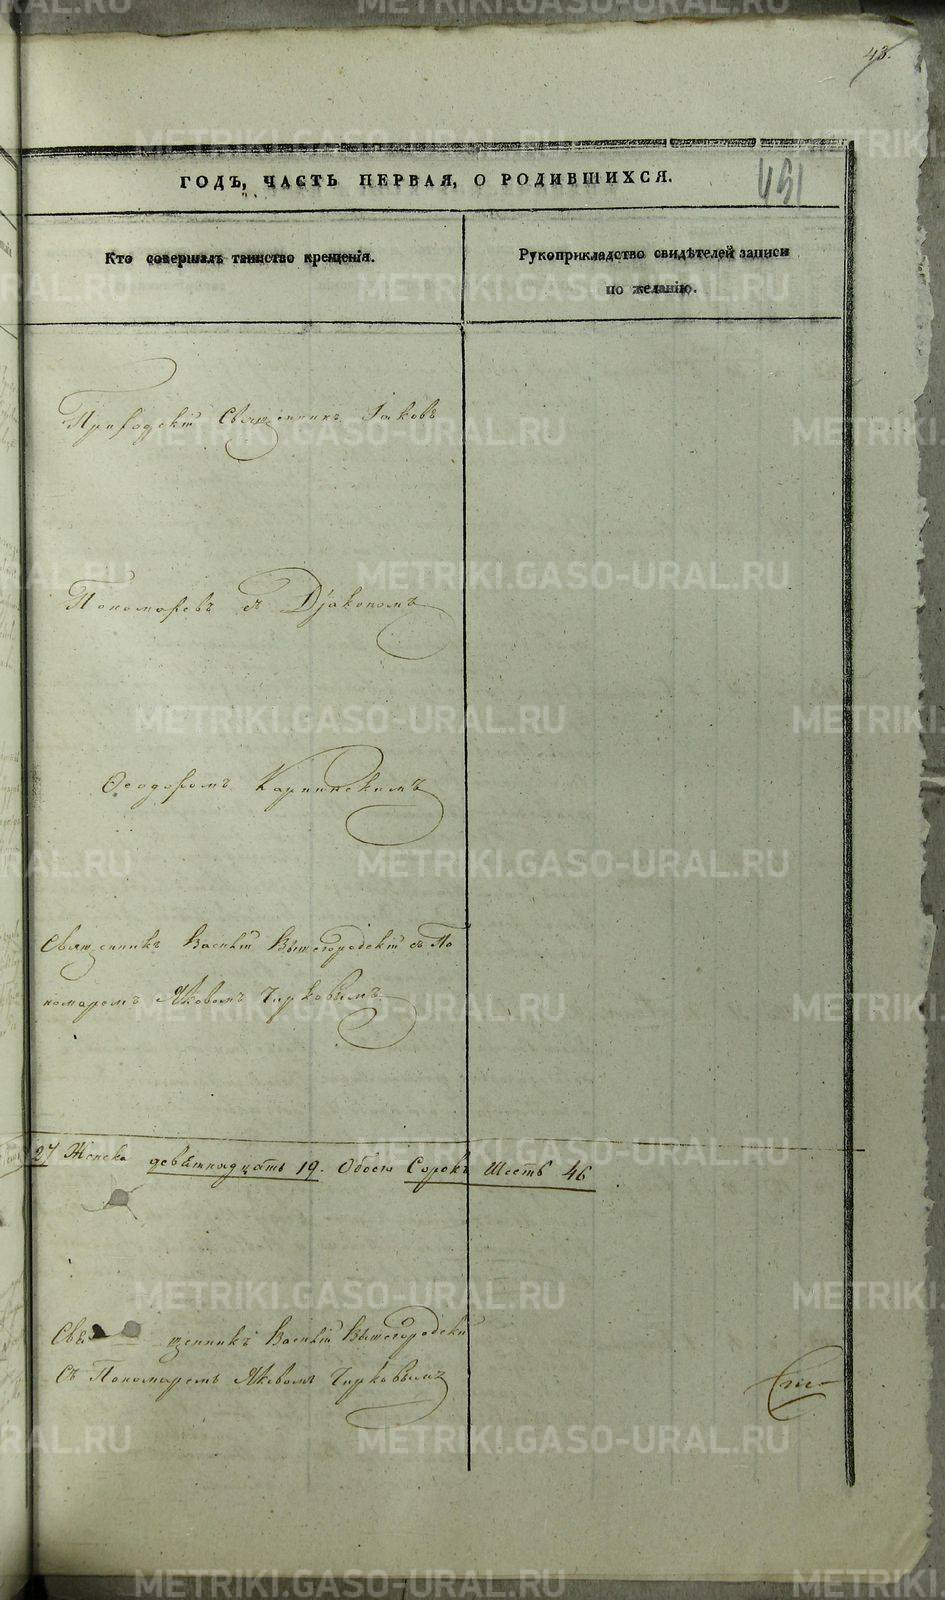 43.
ГОДЪ, ЧАСТЬ ПЕРВАЯ, О РОДИВШИХСЯ.
451
Кто совершалъ таинство крещенія.
Рукоприкладство свидѣтелей записи
по желанію.
Приходскій Священникъ Іаковъ
Пономаревъ съ Діакономъ
Ѳеодоромъ Карпинскимъ
Священникъ Василій Вышегородскій съ По
номаремъ Яковомъ Чирковымъ
27 Женска девятнадцать 19. Обоего Сорокъ Шесть 46
Свя щенникъ Василій Вышегородскій
Съ Пономаремъ Яковомъ Чирковымъ
METRIKI.GASO-URAL.RU